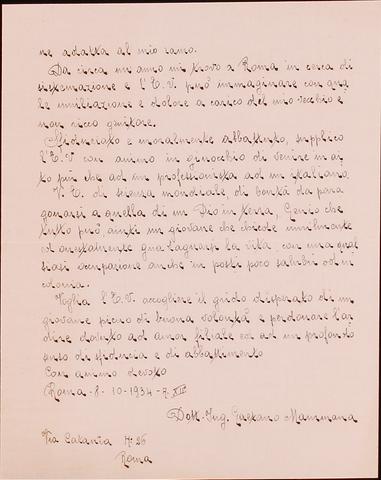 ne adatta al mio ramo.
Da circa un anno mi trovo a Roma in cerca di
sistemazione e l'E.V. può immaginare con qua
le umiliazione e dolore a carico del mio vecchio e
non ricco genitore.
e moralmente abbattuto, supplico
l'E.V con animo in ginocchio di venire in aiu
to più che ad un professionista ad un italiano.
V.E. di stima mondiale di bontà da para
gonarsi a quella di un Dio in terra, Genio che
tutto può aiuti un giovane che chiede umilmente
ed onestamente guadagnarsi la vita con una qual
siasi occupazione anche in posti poco salubri od in
colonia.
Voglia l'E.V. accogliere il grido disperato di un
giovane pieno di buona volontà e perdonare l'ar
dire dovuto ad amor filiale ed ad un profondo
senso di sfiducia e di abbattimento
Con animo devoto
Roma - 8 - 10 - 1934 - XII
Dott. Ing. Gaetano Mammana
Via Catania N. 26
Roma